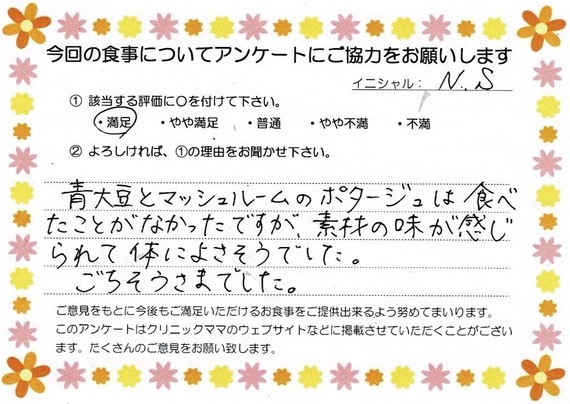 今回の食事についてアンケートにご協力をお願いします
イニシャル： N. S
① 該当する評価に○を付けて下さい。
・満足 ・やや満足 ・普通 ・やや不満 ・不満
② よろしければ、①の理由をお聞かせ下さい。
青大豆とマッシュルームのポタージュは食べ
たことがなかったですが、素材の味が感じ
られて体によさそうでした。
ごちそうさまでした。
ご意見をもとに今後もご満足いただけるお食事をご提供出来るよう努めてまいります。
このアンケートはクリニックママのウェブサイトなどに掲載させていただくことがござい
ます。たくさんのご意見をお願い致します。